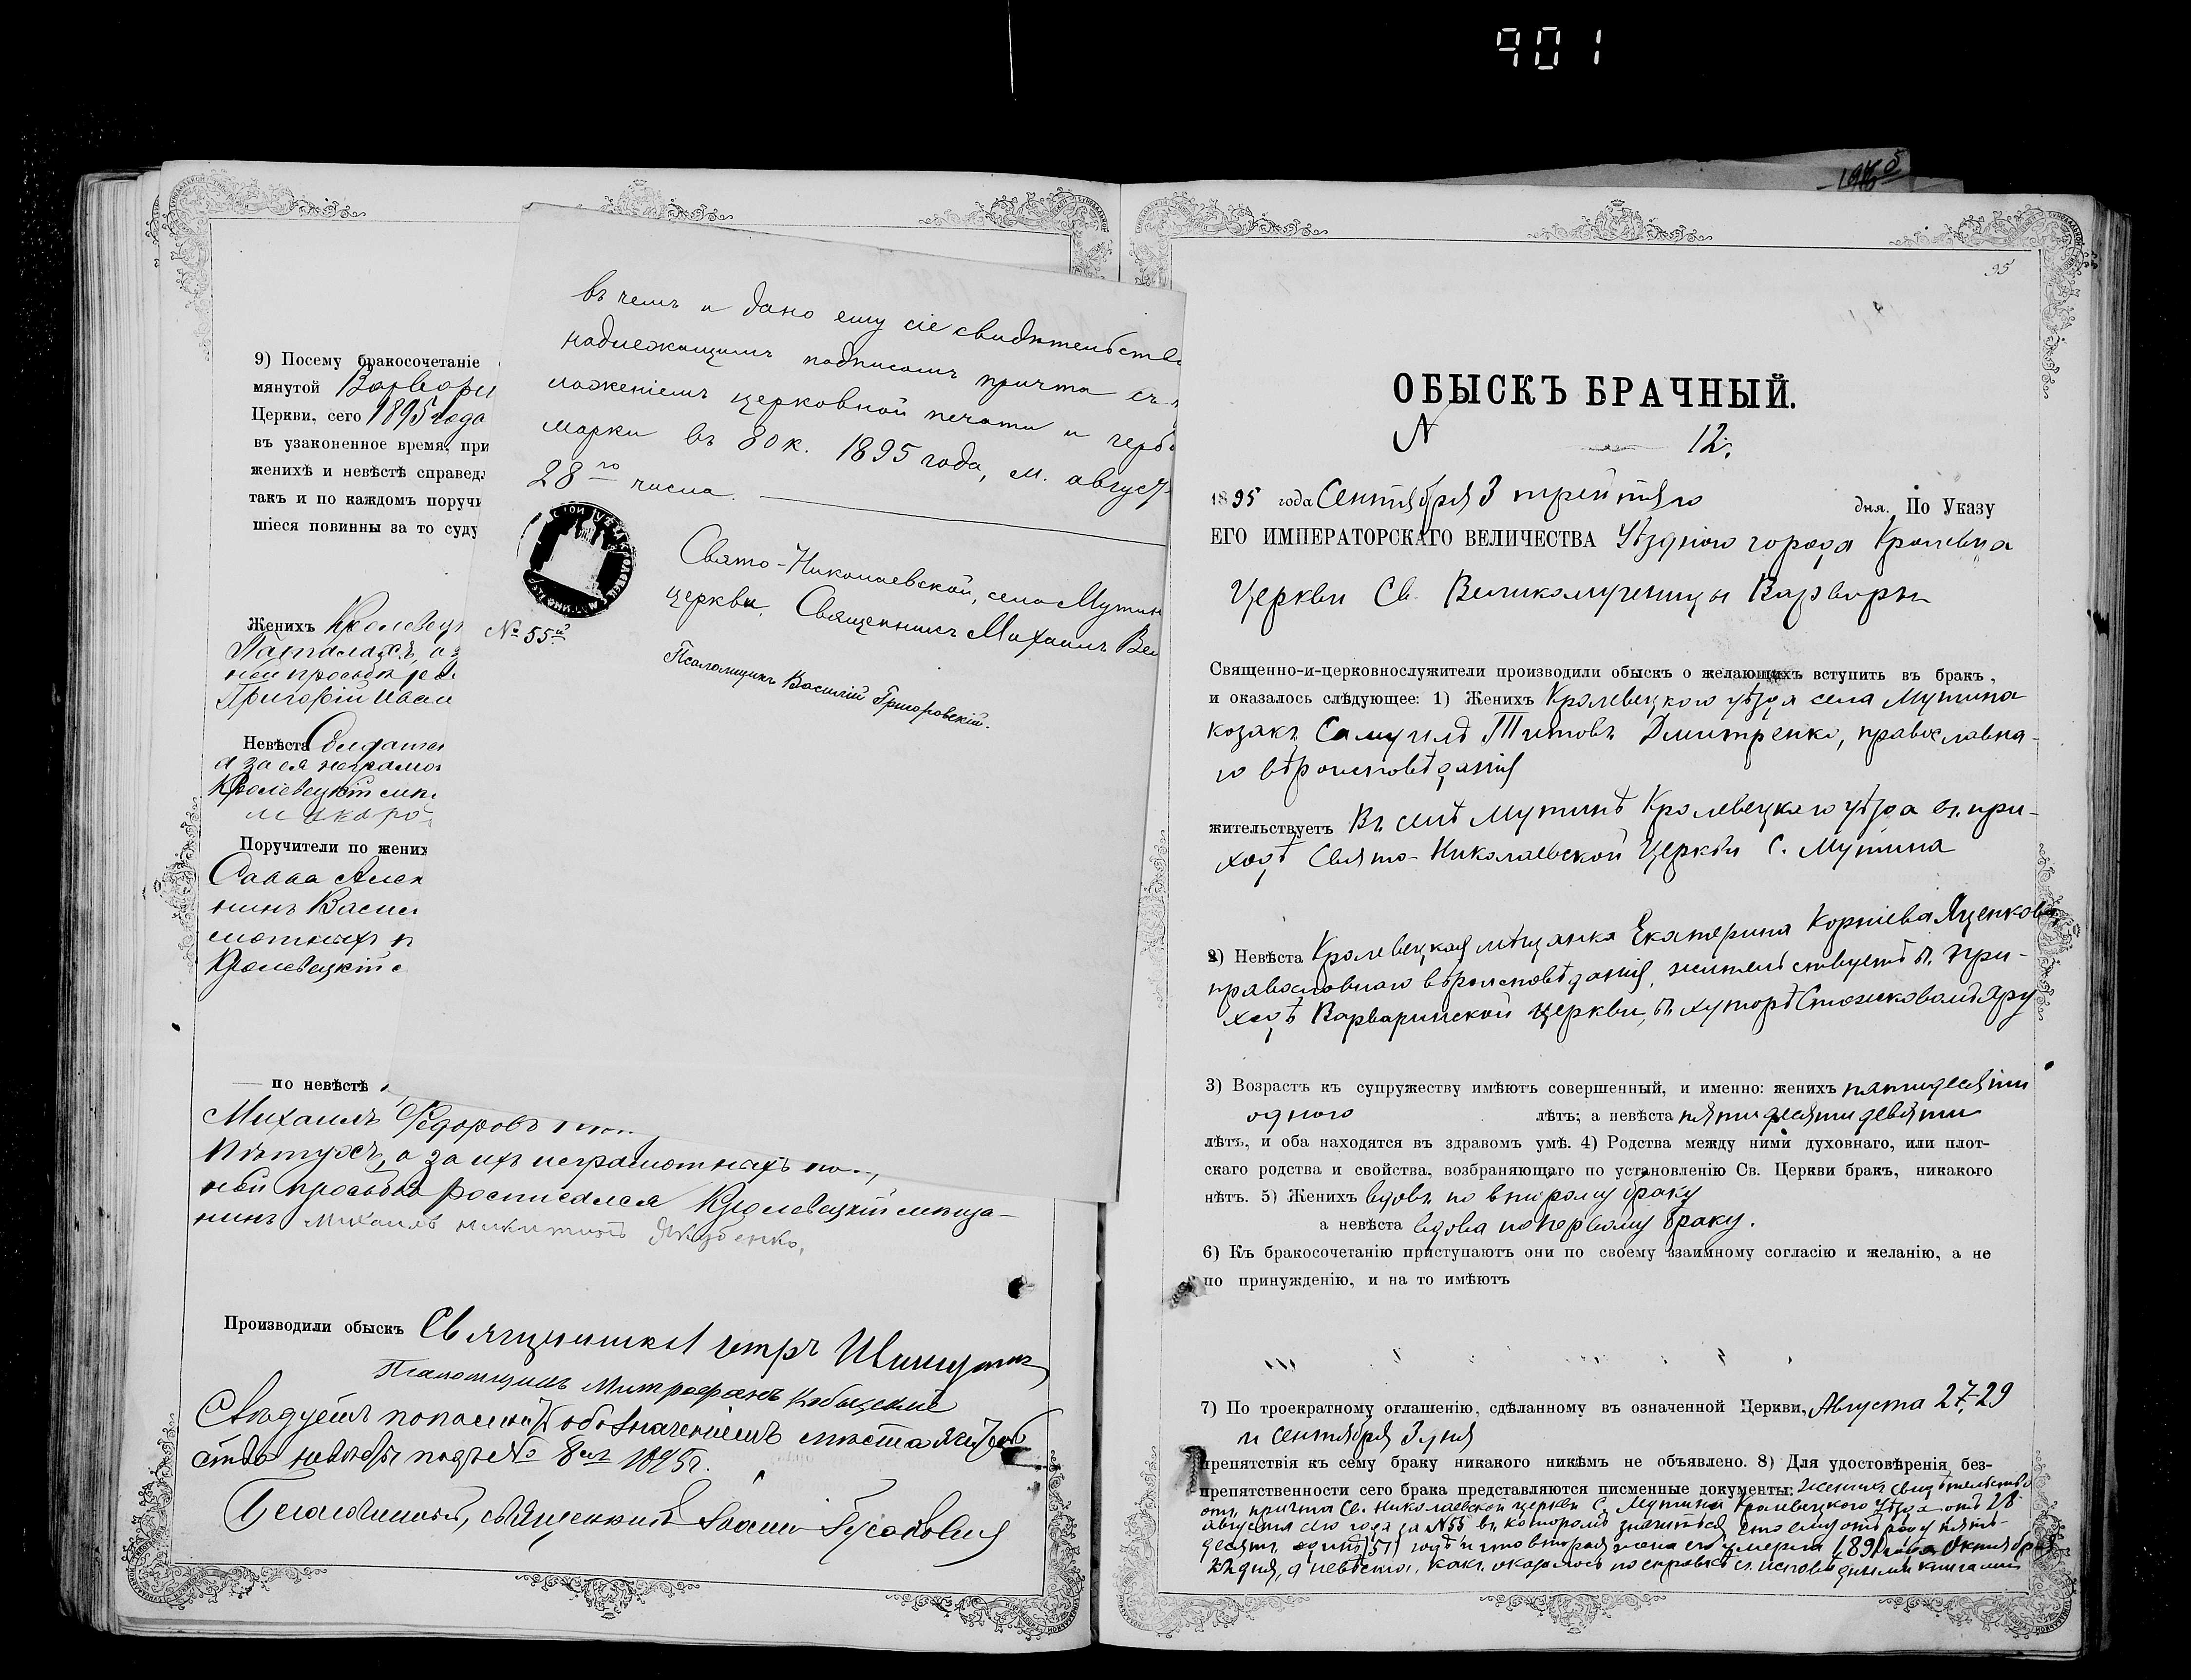 901
9) Посему бракосочетаніе
мянутой Варвари
Церкви, сего 1895 года
въ узаконенное время, при
женихѣ и невѣстѣ справедл
такъ и по каждомъ поручи
шіеся повинны за то суду
Женихъ Кролевец
Григорій
Невѣста Солдатс
а за ея неграмот
Кролевецкій мѣщ
макаро
Поручители по жених
Савва Алек
нинъ Васил
мотныхъ п
Кролевецкій
въ чемъ и дано ему сіе свидѣтельство
надлежащимъ подписомъ причта съ
ложеніемъ церковной печати и герб
марки въ 80 к. 1895 года, м. август
28го числа.
Свято-Николаевской, села Мутин
церкви, Священникъ Михаилъ Ве
№ 55й
Псаломщикъ Василій Григоровскій.
по невѣстѣ
Михаилъ Федоровъ
Пѣтухъ, а за ихъ неграмотныхъ
ной просьбѣ росписался Кролевецкій мѣща-
нинъ Михаилъ Никитинъ
Производили обыскъ Священникъ Петръ
Псаломщикъ Митрофанъ
Слѣдуетъ обозначеніемъ мѣста
невѣсты подъ № 8мъ 1895 г.
Благочинный, священникъ
95
ОБЫСКЪ БРАЧНЫЙ.
N 12.
1895 года Сентября 3 третьяго дня. По Указу
ЕГО ИМПЕРАТОРСКАГО ВЕЛИЧЕСТВА Уѣзднаго города Кролевца
Церкви Св. Великомученицы Варвары
Священно-и-церковнослужители производили обыскъ о желающихъ вступить въ бракъ,
и оказалось слѣдующее: 1) Женихъ Кролевецкого уѣзда села Мутина
козакъ Самуилъ Титовъ Дмитренко, православна-
го вѣроисповѣданія
жительствуетъ Въ селѣ Мутинѣ Кролевецкаго уѣзда въ при-
ходѣ Свято-Николаевской Церкви С. Мутина
2) Невѣста Кролевецкая мѣщанка Екатерина Корніева Яценкова,
православнаго вѣроисповѣданія, жительствуетъ въ при-
ходѣ Варваринской Церкви, въ хуторѣ Стожковомъ Яру
3) Возрастъ къ супружеству имѣютъ совершенный, и именно: женихъ пятидесяти
одного лѣтъ; а невѣста пятидесяти девяти
лѣтъ, и оба находятся въ здравомъ умѣ. 4) Родства между ними духовнаго, или плот-
скаго родства и свойства, возбраняющаго по установленію Св. Церкви бракъ, никакого
нѣтъ. 5) Женихъ вдовъ по второму браку
а невѣста вдова по первому браку.
6) Къ бракосочетанію приступаютъ они по своему взаимному согласію и желанію, а не
по принужденію, и на то имѣютъ
7) По троекратному оглашенію, сдѣланному въ означенной Церкви, Августа 27, 29
и сентября 3 дня
препятствія къ сему браку никакого никѣмъ не объявлено. 8) Для удостовѣренія без-
препятственности сего брака представляются писменные документы: женихъ свидѣтельство
отъ причта Св. Николаевской церкви С. Мутина Кролевецкого уѣзда отъ 28
августа сего года за № 55 въ которомъ значится что ему отъ роду пять-
десятъ одинъ (51) годъ и что вторая жена его умерла 1891 года Октября
22 дня, а невѣста, какъ оказалось по справкѣ съ исповѣдными книгами